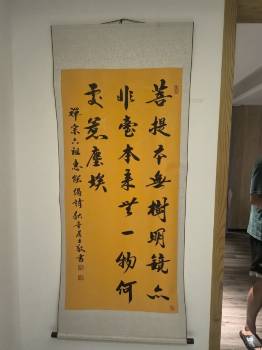 菩提本無樹明鏡亦
非臺本來無一物何
處惹塵埃
禪宗六祖惠能偈詩